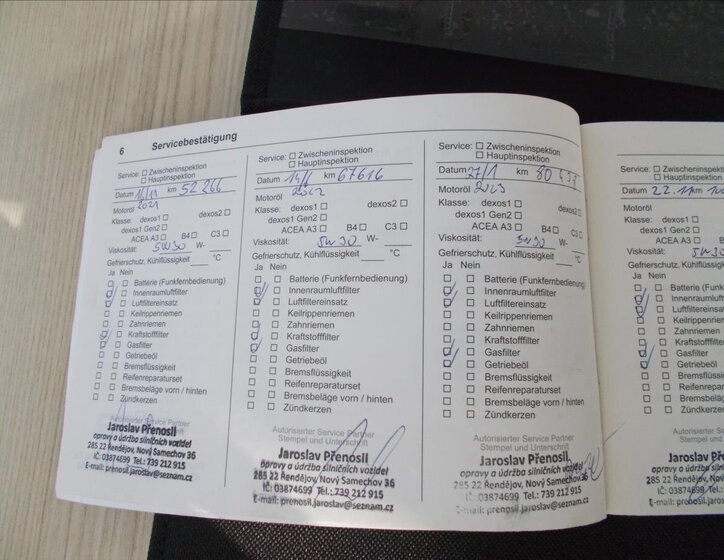 6 Servicebestätigung
Service: Zwischeninspektion
Hauptinspektion
Datum 16/11 km 52 266
Motoröl 2021
Klasse: dexos1 dexos2
dexos1 Gen2
ACEA A3 B4 C3
Viskosität: 5W30 W-
Gefrierschutz, Kühlflüssigkeit °C
Ja Nein
Batterie (Funkfernbedienung)
Innenraumluftfilter
Luftfiltereinsatz
Keilrippenriemen
Zahnriemen
Kraftstofffilter
Gasfilter
Getriebeöl
Bremsflüssigkeit
Reifenreparaturset
Bremsbeläge vorn / hinten
Zündkerzen
Autorisierter Service Partner
Jaroslav Přenosil
opravy a údržba silničních vozidel
285 22 Řendějov, Nový Samechov 36
IČ: 03874699 Tel.: 739 212 915
E-mail: prenosil.jaroslav@seznam.cz
Service: Zwischeninspektion
Hauptinspektion
Datum km 67616
Motoröl 2022
Klasse: dexos1 dexos2
dexos1 Gen2
ACEA A3 B4 C3
Viskosität: 5W30 W-
Gefrierschutz, Kühlflüssigkeit °C
Ja Nein
Batterie (Funkfernbedienung)
Innenraumluftfilter
Luftfiltereinsatz
Keilrippenriemen
Zahnriemen
Kraftstofffilter
Gasfilter
Getriebeöl
Bremsflüssigkeit
Reifenreparaturset
Bremsbeläge vorn / hinten
Zündkerzen
Autorisierter Service Partner
Stempel und Unterschrift
Jaroslav Přenosil
opravy a údržba silničních vozidel
285 22 Řendějov, Nový Samechov 36
IČ: 03874699 Tel.: 739 212 915
E-mail: prenosil.jaroslav@seznam.cz
Service: Zwischeninspektion
Hauptinspektion
Datum 27/1 km 80 437
Motoröl 2023
Klasse: dexos1 dexos2
dexos1 Gen2
ACEA A3 B4 C3
Viskosität: 5W30 W-
Gefrierschutz, Kühlflüssigkeit °C
Ja Nein
Batterie (Funkfernbedienung)
Innenraumluftfilter
Luftfiltereinsatz
Keilrippenriemen
Zahnriemen
Kraftstofffilter
Gasfilter
Getriebeöl
Bremsflüssigkeit
Reifenreparaturset
Bremsbeläge vorn / hinten
Zündkerzen
Autorisierter Service Partner
Stempel und Unterschrift
Jaroslav Přenosil
opravy a údržba silničních vozidel
285 22 Řendějov, Nový Samechov 36
IČ: 03874699 Tel.: 739 212 915
E-mail: prenosil.jaroslav@seznam.cz
Service: Zwischeninspektion
Hauptinspektion
Datum 22.11 km
Motoröl
Klasse: dexos1
dexos1 Gen2
ACEA A3 B4
Viskosität: 5W30
Gefrierschutz, Kühlflüssigkeit
Ja Nein
Batterie
Innenraumluftfilter
Luftfiltereinsatz
Keilrippenriemen
Zahnriemen
Kraftstofffilter
Gasfilter
Getriebeöl
Bremsflüssigkeit
Reifenreparaturset
Bremsbeläge
Zündkerzen
Autorisierter
Stempel
Jaroslav
opravy a údržba
285 22 Řendějov,
IČ: 03874699